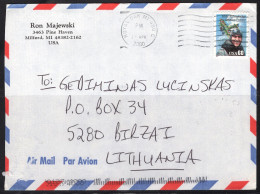 Ron Majewski
3465 Pine Haven
Milford, MI 48382-2162
USA
USA 60
TO: GEDIMINAS LUCINSKAS
P.O. BOX 34
5280 BIRZAI
LITHUANIA
Air Mail Par Avion